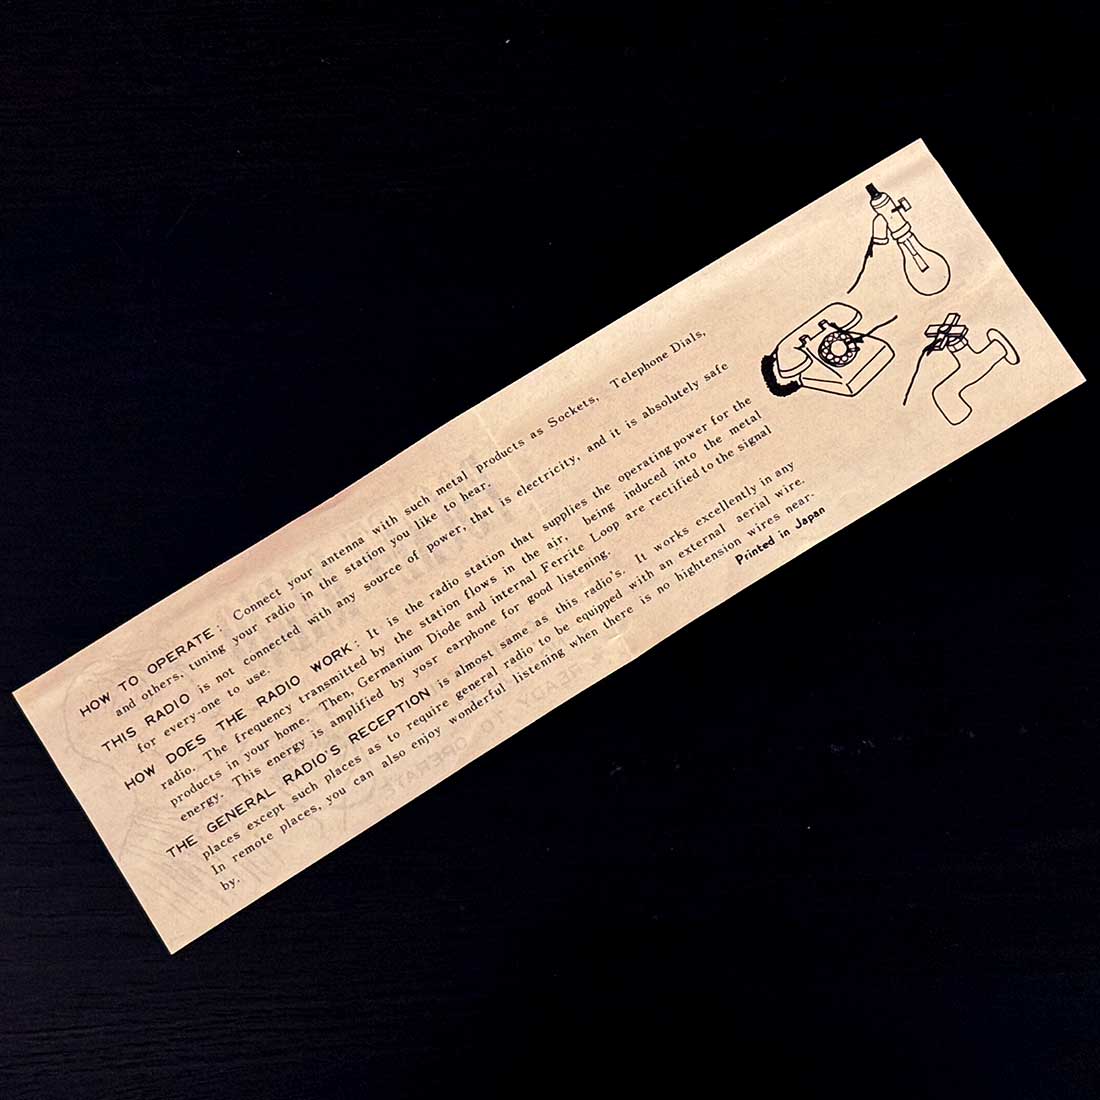 HOW TO OPERATE: Connect your antenna with such metal products as Sockets, Telephone Dials,
and others, tuning your radio in the station you like to hear.
THIS RADIO is not connected with any source of power, that is electricity, and it is absolutely safe
for every-one to use.
HOW DOES THE RADIO WORK: It is the radio station that supplies the operating power for the
radio. The frequency transmitted by the station flows in the air, being induced into the metal
products in your home. Then, Germanium Diode and internal Ferrite Loop are rectified to the signal
energy. This energy is amplified by your earphone for good listening.
THE GENERAL RADIO'S RECEPTION is almost same as this radio's. It works excellently in any
places except such places as to require general radio to be equipped with an external aerial wire.
In remote places, you can also enjoy wonderful listening when there is no hightension wires near.
by.
Printed in Japan
READY TO OPERATE